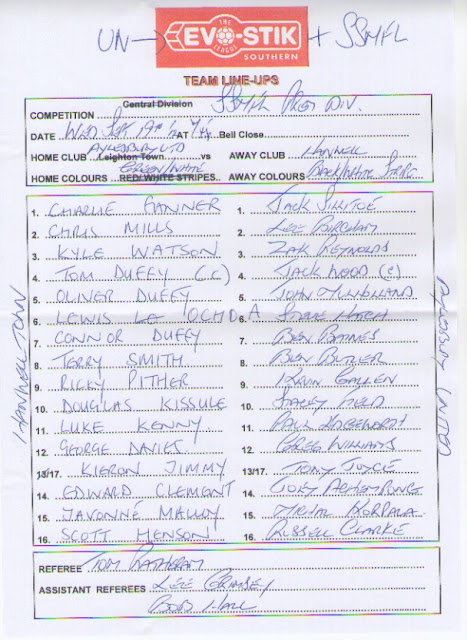 UN → THE EVO-STIK LEAGUE SOUTHERN + SSMFL
TEAM LINE-UPS
COMPETITION Central Division SSMFL PREM DIV.
DATE WED SEPT 19th AT 7:45 Bell Close
AYLESBURY UTD
HOME CLUB Leighton Town vs AWAY CLUB HANWELL
GREEN/WHITE
HOME COLOURS RED/WHITE STRIPES. AWAY COLOURS BLACK/WHITE STRIPE
1. CHARLIE GANNER 1. JACK SILLITOE
2. CHRIS MILLS 2. LEE BURCHAM
3. KYLE WATSON 3. ZAK REYNOLDS
4. TOM DUFFY (C) 4. JACK WOOD (C)
5. OLIVER DUFFY 5. JOHN MULHOLLAND
6. LEWIS LE OCHDA 6. STEVE HATCH
7. CONNOR DUFFY 7. BEN BAINES
8. TERRY SMITH 8. BEN BUTLER
9. RICKY PITHER 9. KEVIN GALLEN
10. DOUGLAS KISSULE 10. STACEY FIELD
11. LUKE KENNY 11. PAUL
12. GEORGE DAVIES 12. GREG WILLIAMS
13/17. KIERON JIMMY 13/17. TONY JOYCE
14. EDWARD CLEMENT 14. JOEY ACHEAMPONG
15. JAVONNE MALLOY 15. MICHAL KORPALA
16. SCOTT HENSON 16. RUSSELL CLARKE
HANWELL TOWN
AYLESBURY UNITED
REFEREE TOM
ASSISTANT REFEREES LEE GRIMSEY
BOB HALL